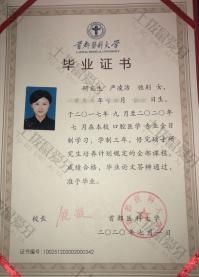 首都医科大学
CAPITAL MEDICAL UNIVERSITY
毕业证书
研究生 严凌洁 性别 女，
年 月 日生，
于二〇一七年 九月至二〇二〇年
七月在本校 口腔医学 专业全日
制学习，学制三年，修完硕士研
究生培养计划规定的全部课程，
成绩合格，毕业论文答辩通过，
准予毕业。
校长
首都医科大学
二〇二〇年七月一日
证书编号：100251202002000342